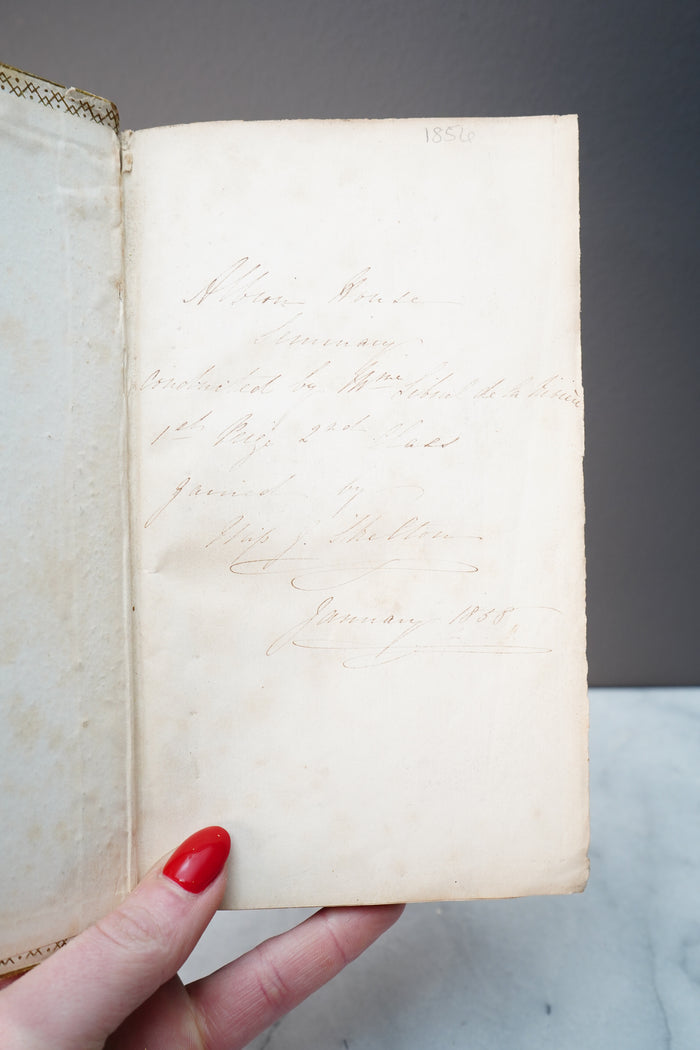 1856
Albion House
Seminary
conducted by Mme de la
1st Prize 2nd Class
gained by
Miss J. Skelton
January 1858